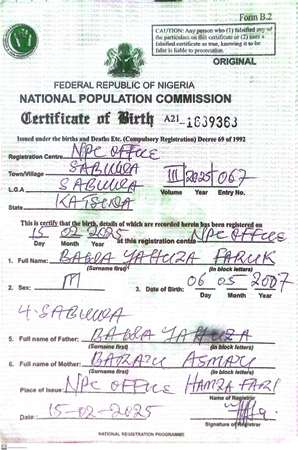 Form B.2
CAUTION: Any person who (1) falsified any of
the particulars on this certificate or (2) uses a
falsified certificate as true, knowing it to be
false is liable to prosecution.
ORIGINAL
FEDERAL REPUBLIC OF NIGERIA
NATIONAL POPULATION COMMISSION
Certificate of Birth A21-1639363
Issued under the births and Deaths Etc. (Compulsory Registration) Decree 69 of 1992
Registration Centre: NPC OFFICE
Town/Village SABUWA III 2025 067
L.G.A SABUWA Volume Year Entry No.
State KATSINA
This is certify that the birth, details of which are recorded herein has been registered on
15 02 2025 at this registration centre NPC OFFICE
Day Month Year
1. Full Name: BADIA YAHUZA FARUK
(Surname first) (in block letters)
2. Sex: M 3. Date of Birth: 06 05 2007
Day Month Year
4. SABUWA
5. Full name of Father: YAHUZA
(Surname first) (in block letters)
6. Full name of Mother: ASMAU
(Surname first) (in block letters)
Place of Issue: NPC OFFICE HAMZA
Name of Registrar
Date: 15-02-2025
Signature of Registrar
NATIONAL REGISTRATION PROGRAMME